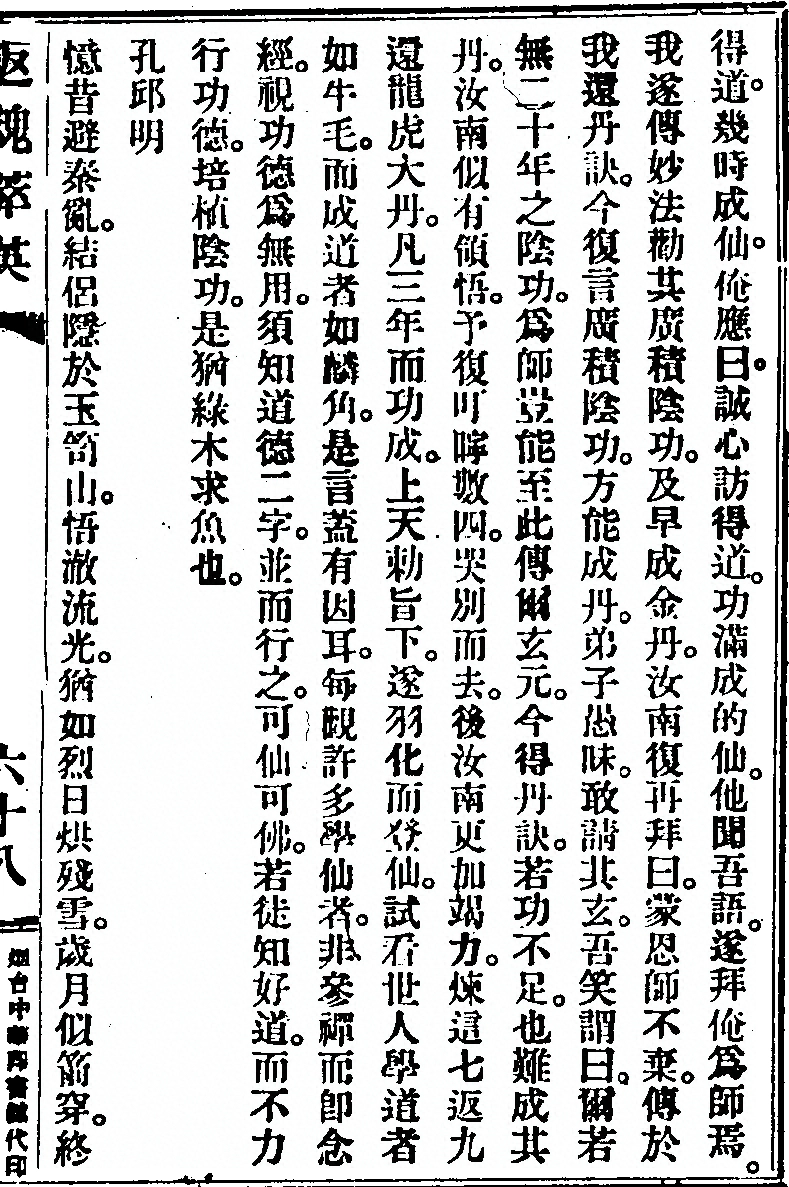 得道。幾時成仙。俺應曰。誠心訪得道。功滿成的仙。他聞吾語。遂拜俺爲師焉。
我遂傳妙法勸其廣積陰功。及早成金丹。汝南復再拜曰。蒙恩師不棄。傳於
我還丹訣。今復言廣積陰功。方能成丹。弟子愚昧。敢請其玄。吾笑謂曰。爾若
無二十年之陰功。爲師豈能至此傳爾玄元。今得丹訣。若功不足。也難成其
丹。汝南似有領悟。予復叮嚀數四。哭別而去。後汝南更加竭力。煉這七返九
還龍虎大丹。凡三年而功成。上天勅旨下。遂羽化而登仙。試看世人學道者
如牛毛。而成道者如麟角。是言蓋有因耳。每觀許多學仙者。非參禪而卽念
經。視功德爲無用。須知道德二字。並而行之。可仙可佛。若徒知好道。而不力
行功德。培植陰功。是猶綠木求魚也。
孔邱明
憶昔避秦亂。結侶隱於玉笥山。悟澈流光。猶如烈日烘殘雪。歲月似箭穿。終
返魂萃英
六十八
烟台中華印書館代印